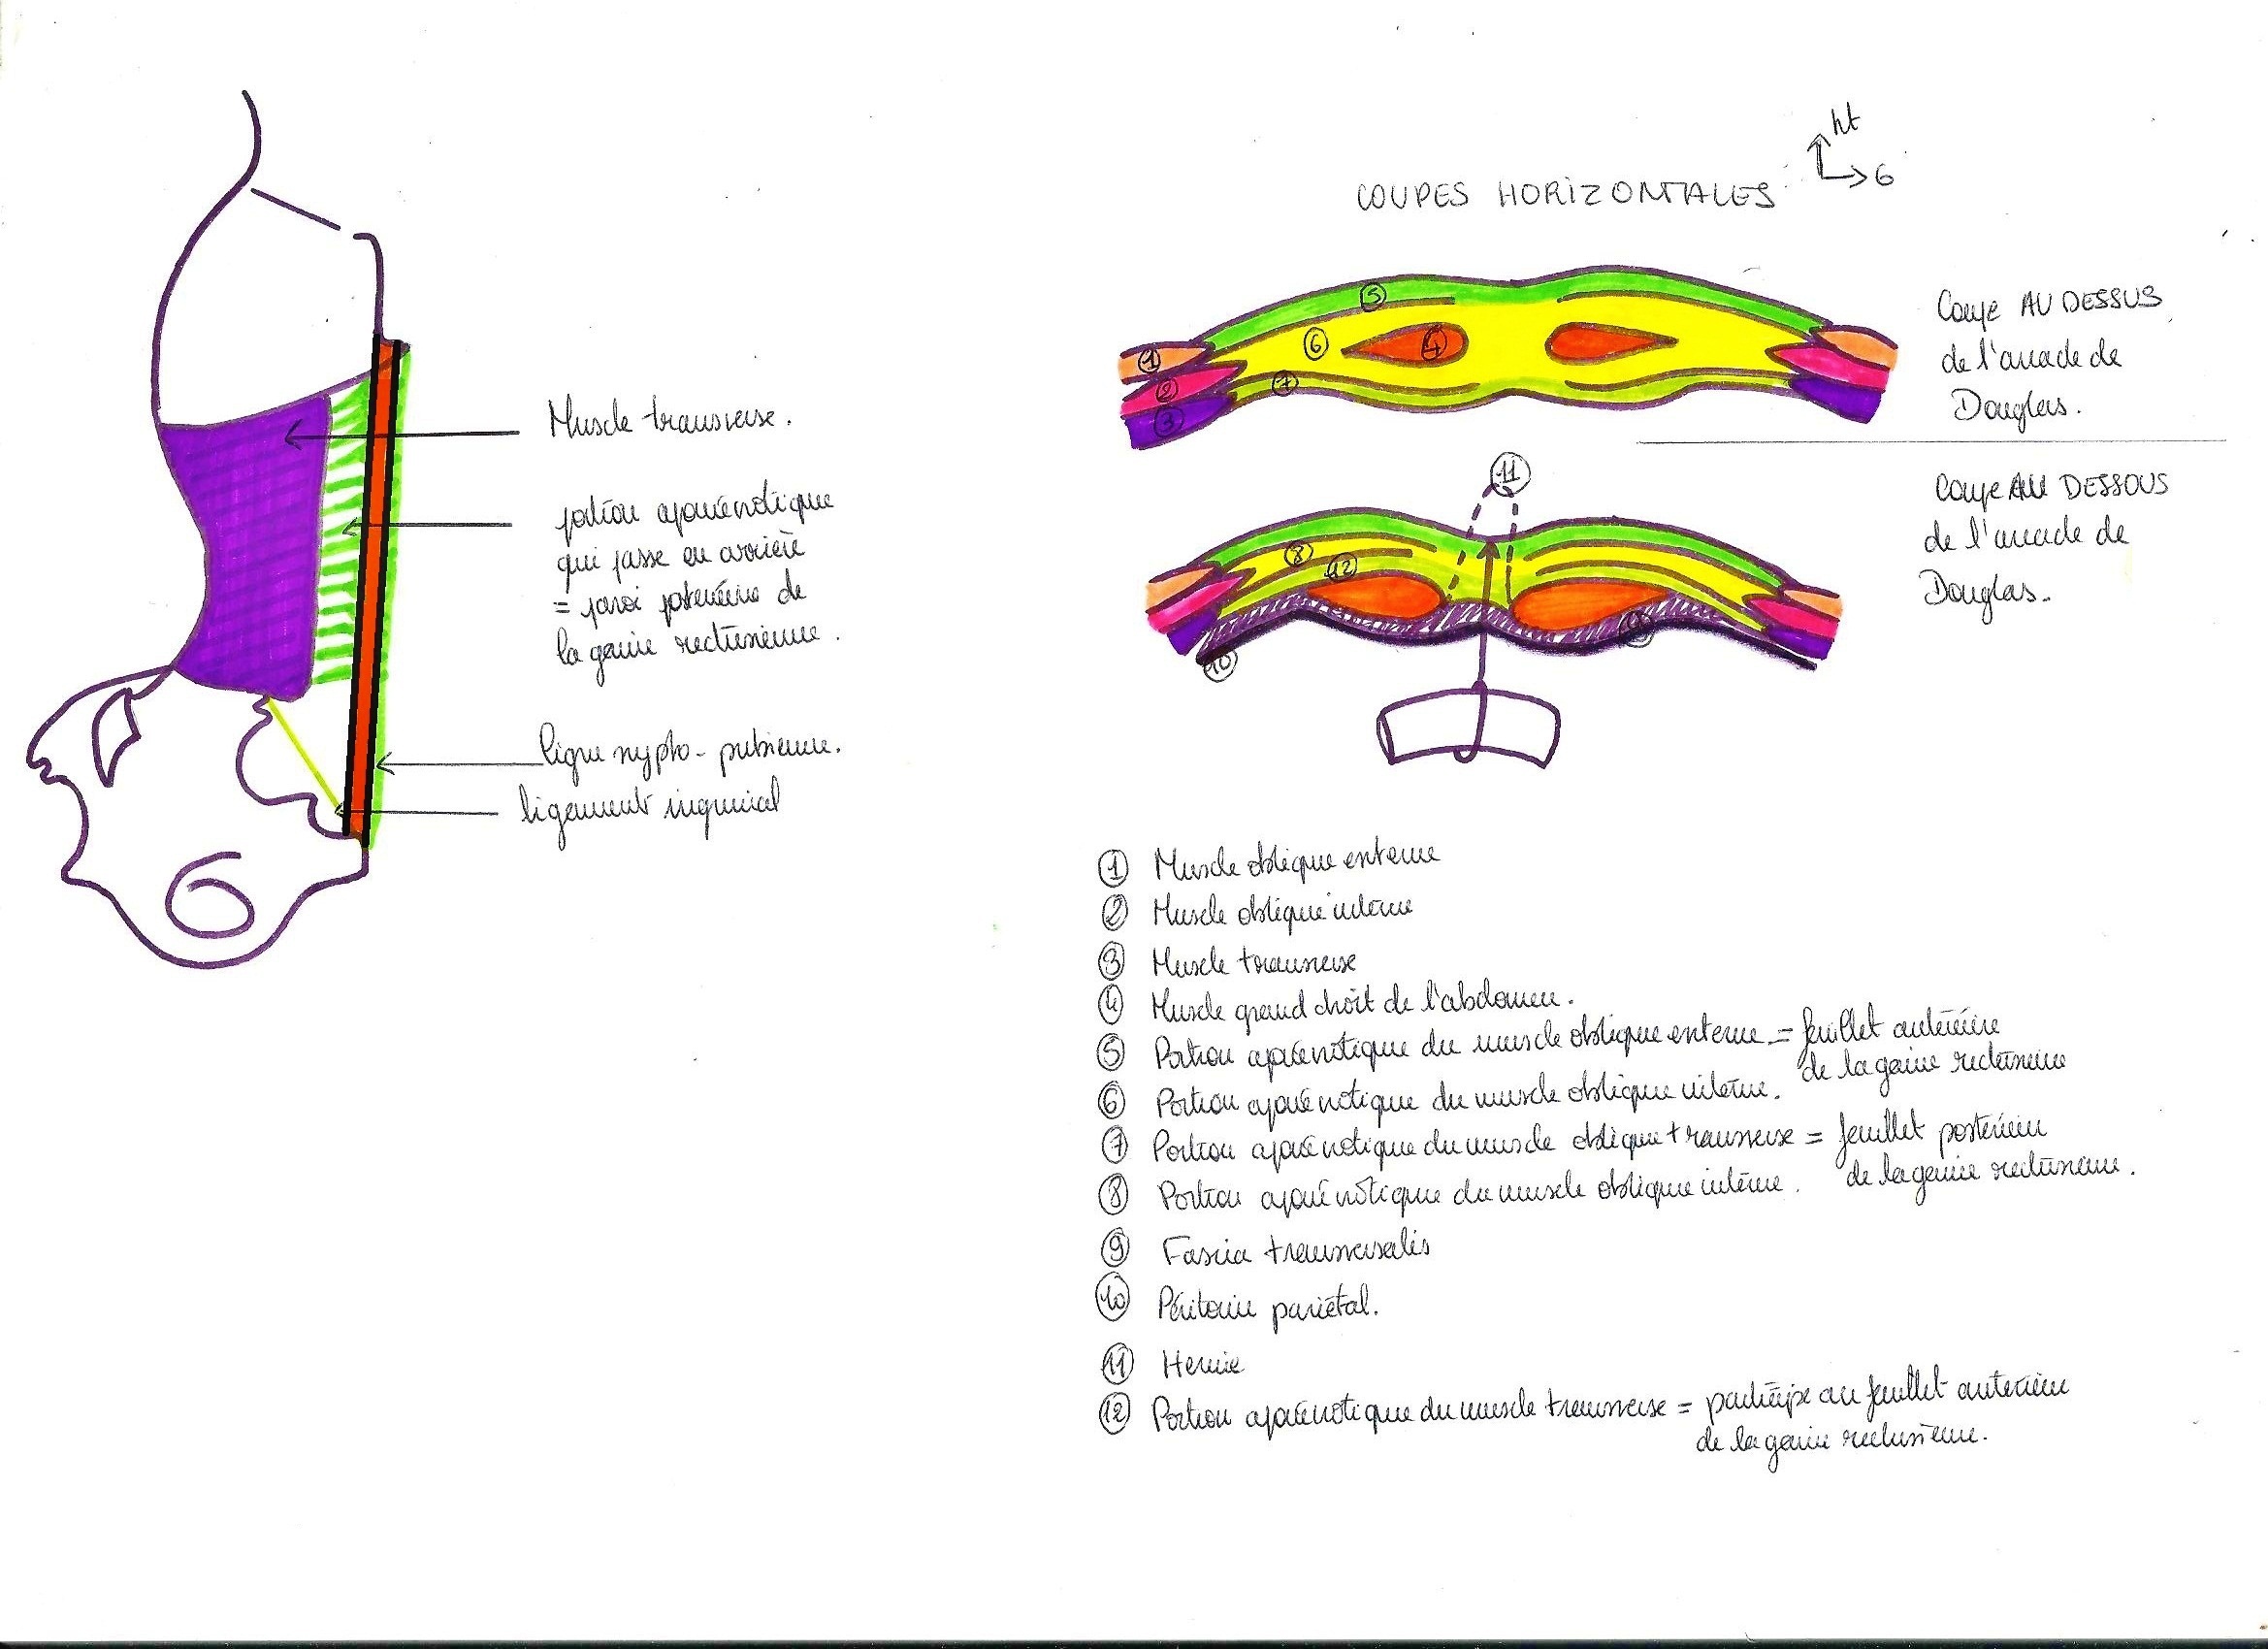 Muscle transverse.
portion aponévrotique
qui passe en arrière
= paroi postérieure de
la gaine rectusienne.
ligne xypho-pubienne.
ligament inguinal
COUPES HORIZONTALES
ht
G
Coupe AU DESSUS
de l'arcade de
Douglas.
Coupe AU DESSOUS
de l'arcade de
Douglas.
5
1
6
4
2
7
3
11
8
12
9
10
1 Muscle oblique externe
2 Muscle oblique interne
3 Muscle transverse
4 Muscle grand droit de l'abdomen.
5 Portion aponévrotique du muscle oblique externe = feuillet antérieure
de la gaine rectusienne
6 Portion aponévrotique du muscle oblique interne.
7 Portion aponévrotique du muscle oblique transverse = feuillet postérieur
de la gaine rectusienne.
8 Portion aponévrotique du muscle oblique interne.
9 Fascia transversalis
10 Péritoine pariétal.
11 Hernie
12 Portion aponévrotique du muscle transverse = participe au feuillet antérieur
de la gaine rectusienne.